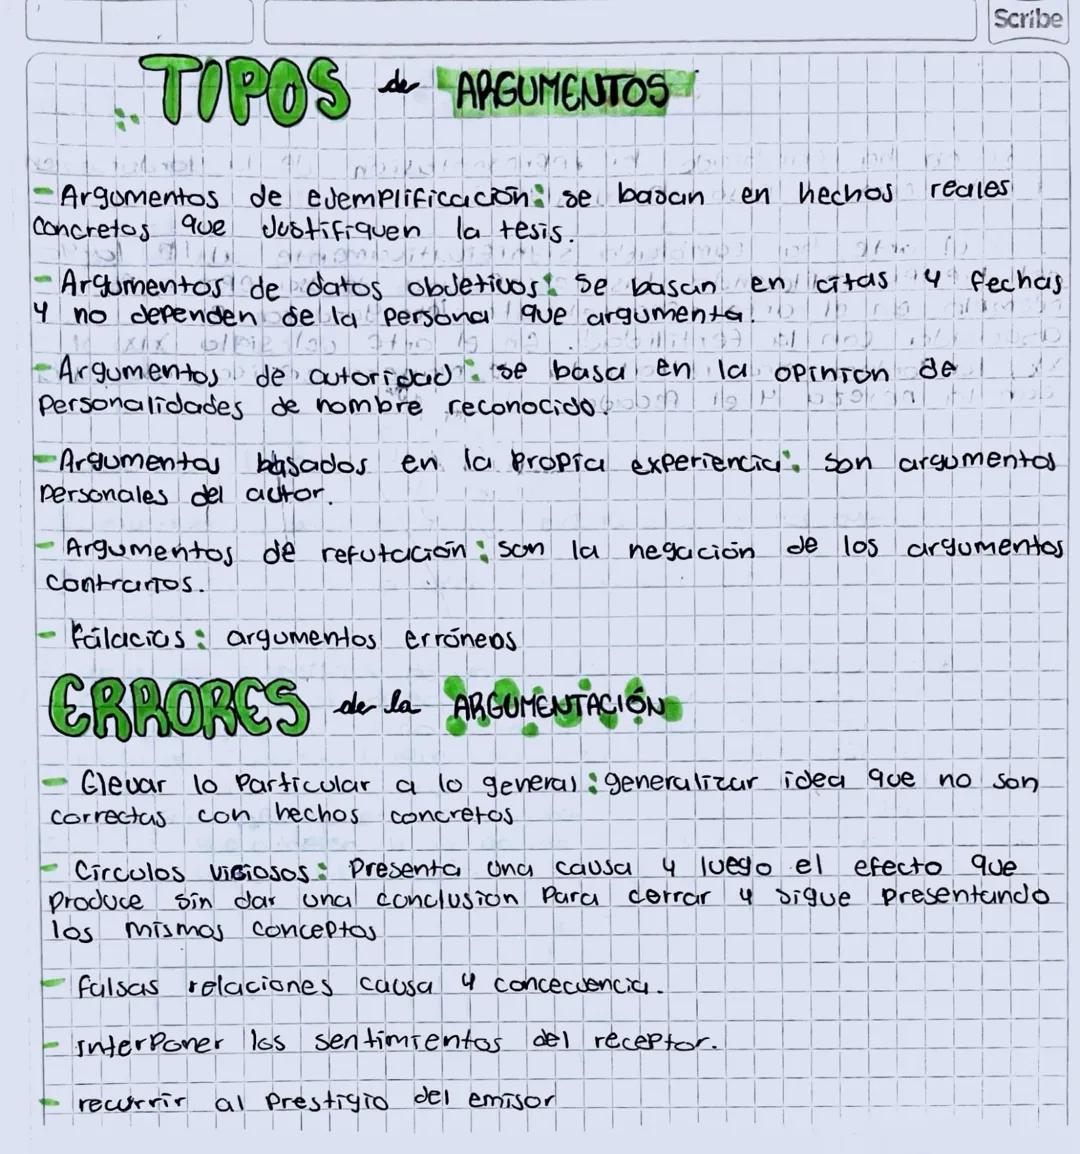 Scribe
TIPOS de ARGUMENTOS
- Argumentos de ejemplificación: se basan en hechos reales
concretos que justifiquen la tesis.
- Argumentos de datos objetivos: se basan en citas y fechas
y no dependen de la persona que argumenta.
- Argumentos de autoridad: se basa en la opinión de
personalidades de nombre reconocido.
- Argumentos basados en la propia experiencia: son argumentos
personales del autor.
- Argumentos de refutación: son la negación de los argumentos
contrarios.
- Fálacias: argumentos erróneos
ERRORES de la ARGUMENTACIÓN
- Elevar lo particular a lo general: generalizar idea que no son
correctas con hechos concretos
- Círculos viciosos: Presenta una causa y luego el efecto que
produce sin dar una conclusion para cerrar y sigue presentando
los mismos conceptos
- falsas relaciones causa y concecuencia.
- interponer los sentimientos del receptor.
- recurrir al prestigio del emisor